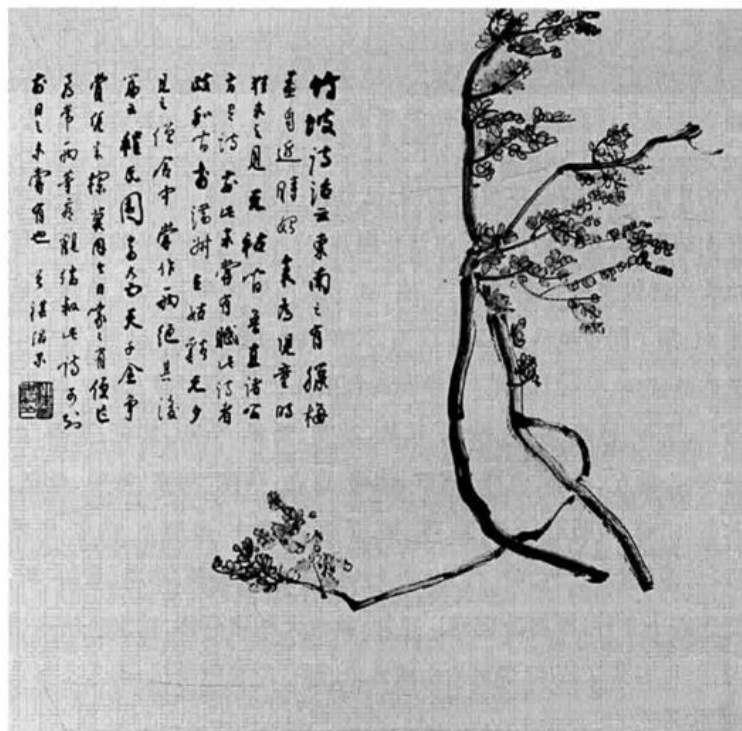 竹坡诗话云東南之有臘梅
蓋自近時始余為児童時
猶未之見元祐間魯直諸公
方有詩前此未嘗有賦此詩者
政和間李端叔在姑谿元夕
見之僧舍中嘗作兩絕其後
篇云程氏園當尺五天千金爭
賞凭朱欄莫因今日家之有便作
尋常兩等看觀端叔此詩可知
前日之未嘗有也